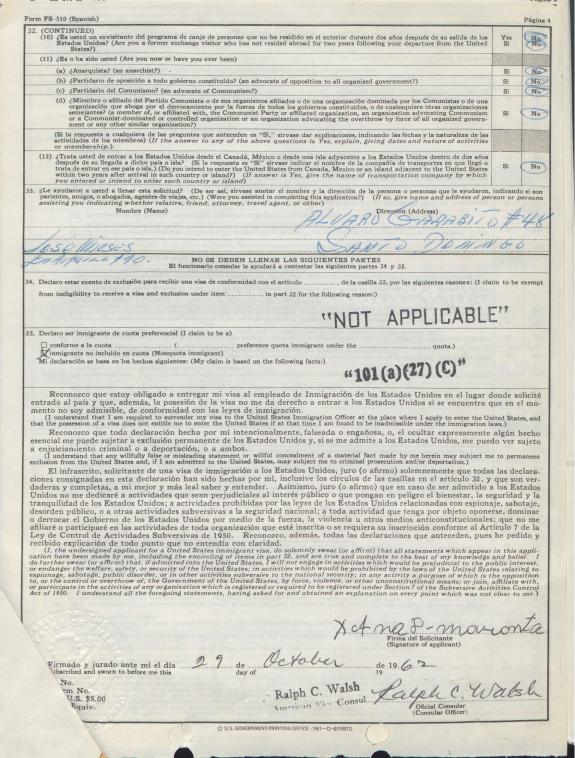 Form FS-510 (Spanish)
Página 4
32. (CONTINUED)
(10) ¿Es usted un exvisitante del programa de canje de personas que no ha residido en el exterior durante dos años después de su salida de los
Estados Unidos? (Are you a former exchange visitor who has not resided abroad for two years following your departure from the United
States?)
Yes No
Sí No
(11) ¿Es o ha sido usted (Are you now or have you ever been)
(a) ¿Anarquista? (an anarchist?) Sí No
(b) ¿Partidario de oposición a todo gobierno constituído? (an advocate of opposition to all organized government?) Sí No
(c) ¿Partidario del Comunismo? (an advocate of Communism?) Sí No
(d) ¿Miembro o afiliado del Partido Comunista o de sus organismos afiliados o de una organización dominada por los Comunistas o de una
organización que aboga por el derrocamiento por la fuerza de todos los gobiernos constituídos, o de cualesquiera otras organizaciones
semejantes? (a member of, or affiliated with, the Communist Party or affiliated organization, an organization advocating
a Communist-dominated or controlled organization or an organization advocating the overthrow by force of all organized govern-
ment or any other similar organization?)
Sí No
(Si la respuesta a cualquiera de las preguntas que anteceden es "Sí," sírvase dar explicaciones, indicando las fechas y la naturaleza de las
actividades de los miembros) (If the answer to any of the above questions is Yes, explain, giving dates and nature of activities
or membership.)
(12) ¿Trata usted de entrar a los Estados Unidos desde el Canadá, México o desde una isla adyacente a los Estados Unidos dentro de dos años
después de su llegada a dicho país o isla? (Si la respuesta es "Sí" sírvase indicar el nombre de la compañía de transportes en que llegó o
trata de entrar en ese país o isla.) (Do you intend to enter the United States from Canada, Mexico or an island adjacent to the United States
within two years after arrival in such country or island?) (If answer is Yes, give the name of transportation company by which
you entered or intend to enter such country or island)
Sí No
33. ¿Le ayudaron a usted a llenar esta solicitud? (De ser así, sírvase anotar el nombre y la dirección de la persona o personas que le ayudaron, indicando si son
parientes, amigos, o abogados, agentes de viajes, etc.) (Were you assisted in completing this application?) (If so, give name and address of person or persons
assisting you indicating whether relative, friend, attorney, travel agent, or other)
Nombre (Name) Dirección (Address)
Alvaro Garabito #48
José Mieses Santo Domingo
NO SE DEBEN LLENAR LAS SIGUIENTES PARTES
El funcionario consular le ayudará a contestar las siguientes partes 34 y 35.
34. Declaro estar exento de exclusión para recibir una visa de conformidad con el artículo de la casilla 32, por las siguientes razones: (I claim to be exempt
from ineligibility to receive a visa and exclusion under item in part 32 for the following reason:)
"NOT APPLICABLE"
35. Declaro ser inmigrante de cuota preferencial (I claim to be a)
conforme a la cuota ( preference quota immigrant under the quota.)
X inmigrante no incluído en cuota (Nonquota immigrant)
Mi declaración se basa en los hechos siguientes: (My claim is based on the following facts:)
"101(a)(27)(C)"
Reconozco que estoy obligado a entregar mi visa al empleado de Inmigración de los Estados Unidos en el lugar donde solicité
entrada al país y que, además, la posesión de la visa no me da derecho a entrar a los Estados Unidos si se encuentra que en el mo-
mento no soy admisible, de conformidad con las leyes de inmigración.
(I understand that I am required to surrender my visa to the United States Immigration Officer at the place where I apply to enter the United States, and
that the possession of a visa does not entitle me to enter the United States if at that time I am found to be inadmissible under the immigration laws.)
Reconozco que toda declaración hecha por mí intencionalmente, falseada o engañosa, o, el ocultar expresamente algún hecho
esencial me puede sujetar a exclusión permanente de los Estados Unidos y, si se me admite a los Estados Unidos, me puedo ver sujeto
a enjuiciamiento criminal o a deportación, o a ambos.
(I understand that any willfully false or misleading statement or willful concealment of a material fact made by me herein may subject me to permanent
exclusion from the United States and, if I am admitted to the United States, may subject me to criminal prosecution and/or deportation.)
El infrascrito, solicitante de una visa de inmigración a los Estados Unidos, juro (o afirmo) solemnemente que todas las declara-
ciones consignadas en esta declaración han sido hechas por mí, inclusive los círculos de las casillas en el artículo 32, y que son ver-
daderas y completas, a mi mejor y más leal saber y entender. Asimismo, juro (o afirmo) que en caso de ser admitido a los Estados
Unidos no me dedicaré a actividades que sean perjudiciales al interés público o que pongan en peligro el bienestar, la seguridad y la
tranquilidad de los Estados Unidos; a actividades prohibidas por las leyes de los Estados Unidos relacionadas con espionaje, sabotaje,
desórden público, o a otras actividades subversivas a la seguridad nacional; a toda actividad que tenga por objeto oponerse, dominar
o derrocar el Gobierno de los Estados Unidos por medio de la fuerza, la violencia u otros medios anticonstitucionales; que no me
afiliaré o participaré en las actividades de toda organización que esté inscrita o se requiera su inscripción conforme al Artículo 7 de la
Ley de Control de Actividades Subversivas de 1950. Reconozco, además, todas las declaraciones que anteceden, pues he pedido y
recibido explicación de todo punto que no entendía con claridad.
(I, the undersigned applicant for a United States immigrant visa, do solemnly swear (or affirm) that all statements which appear in this appli-
cation have been made by me, including the encircling of items in part 32, and are true and complete to the best of my knowledge and belief. I
do further swear (or affirm) that, if admitted into the United States, I will not engage in activities which would be prejudicial to the public interest,
or endanger the welfare, safety, or security of the United States; in activities which would be prohibited by the laws of the United States relating to
espionage, sabotage, public disorder, or in other activities subversive to the national security; in any activity a purpose of which is the opposition
to, or the control or overthrow of, the Government of the United States, by force, violence, or other unconstitutional means; or join, affiliate with,
or participate in the activities of any organization which is registered or required to be registered under Section 7 of the Subversive Activities Control
Act of 1950. I understand all the foregoing statements, having asked for and obtained an explanation on every point which was not clear to me.)
X Ana P-
Firma del Solicitante
(Signature of applicant)
Firmado y jurado ante mí el día 29 de October de 1962
Subscribed and sworn to before me this day of 19
No.
em No.
U.S. $5.00
Equiv.
Ralph C. Walsh
American Vice Consul
Ralph C. Walsh
Oficial Consular
(Consular Officer)
☆ U.S. GOVERNMENT PRINTING OFFICE : 1961—O-619972